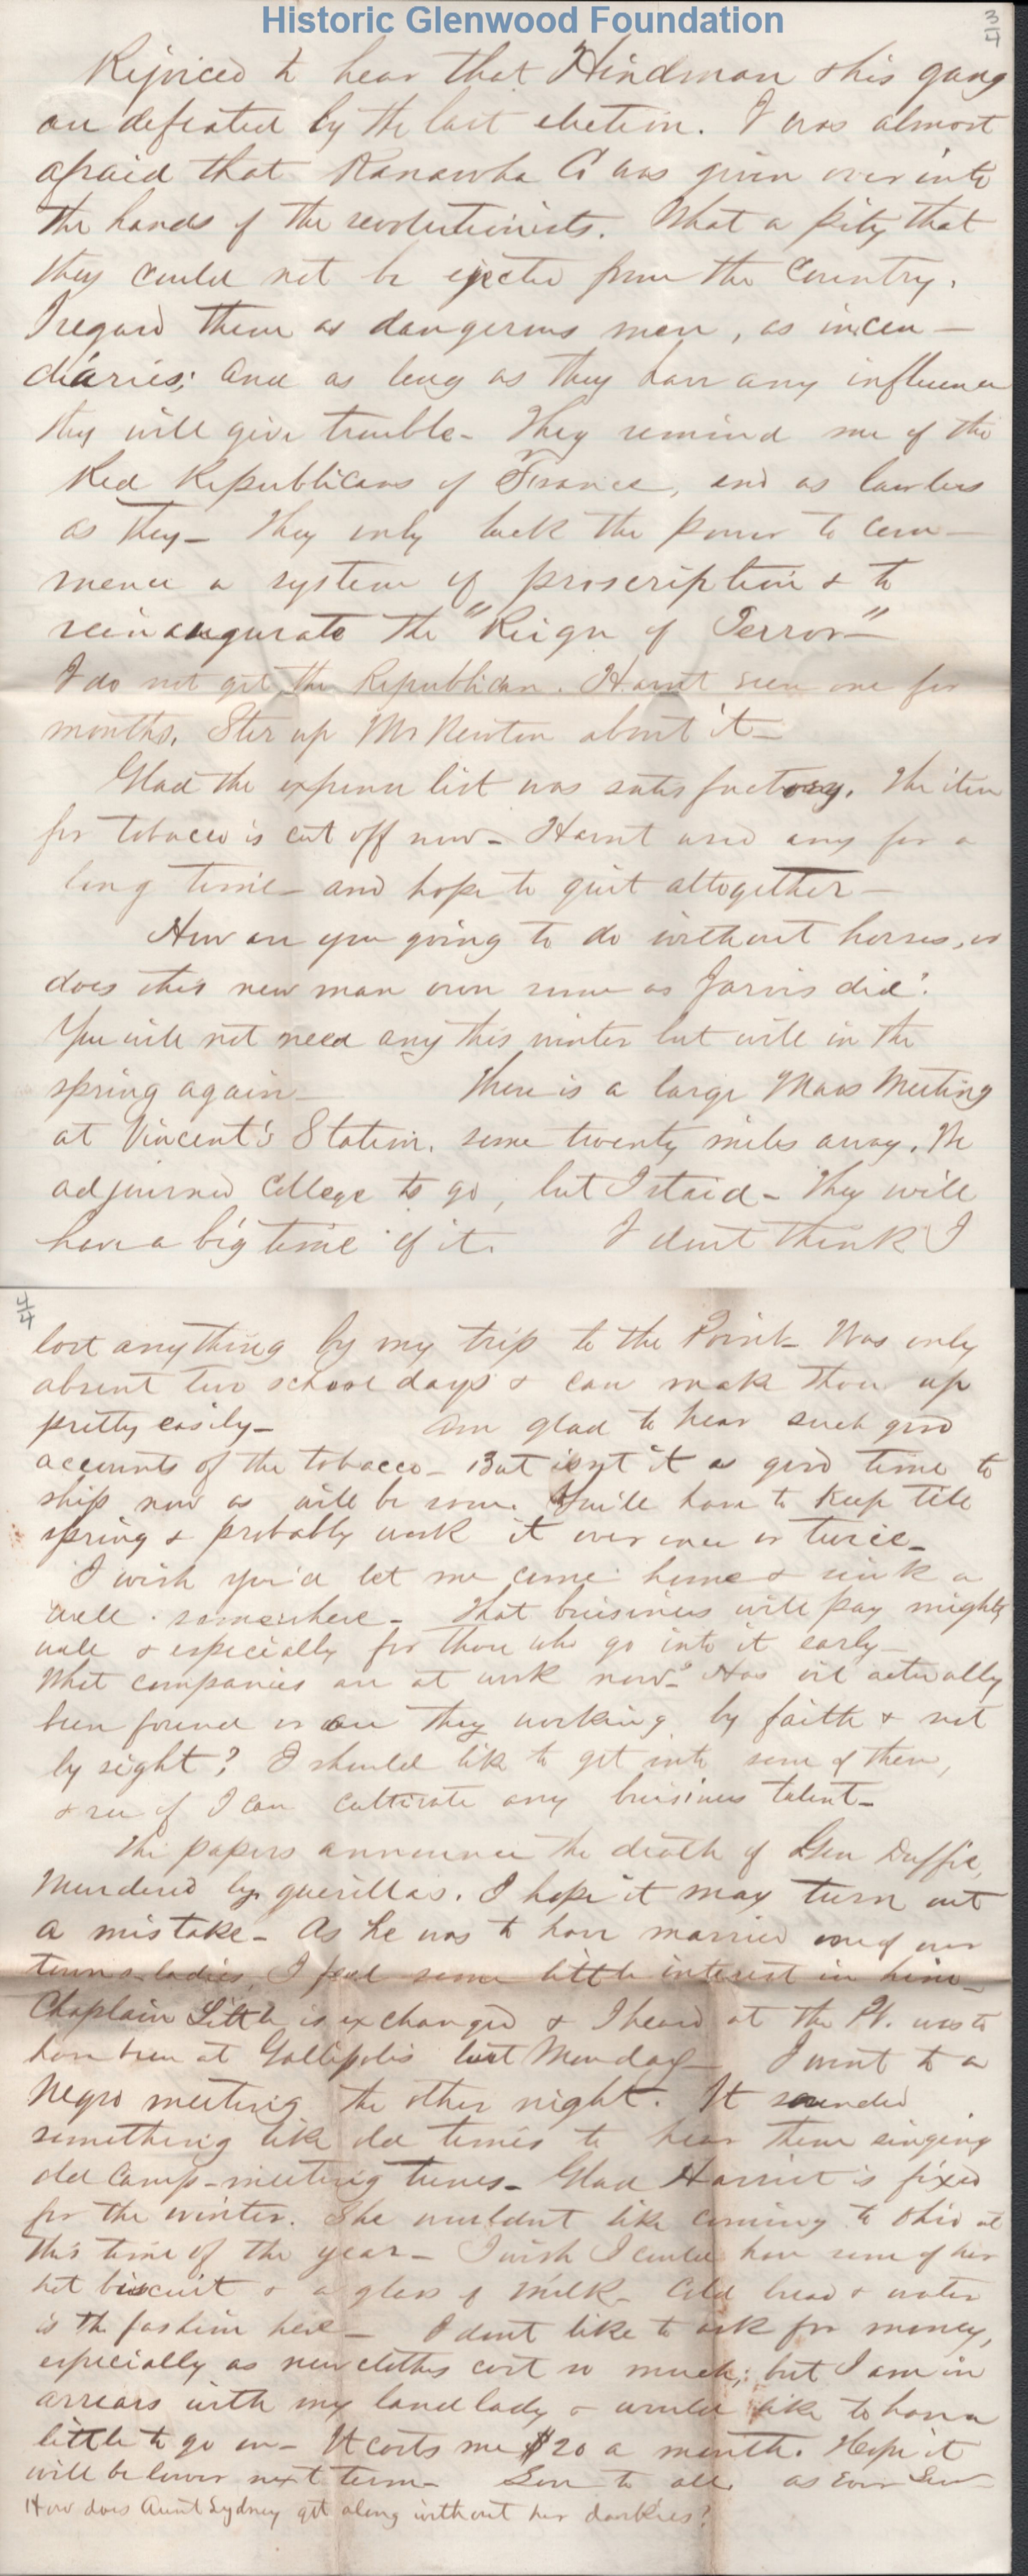 Historic Glenwood Foundation
3/4
Rejoiced to hear that Hindman & his gang
are defeated by the last election. I was almost
afraid that Kanawha Co was given over into
the hands of the revolutionists. What a pity that
they could not be ejected from the country.
I regard them as dangerous men, as incen-
diaries; and as long as they have any influence
they will give trouble- They remind me of the
Red Republicans of France, and as lawless
as they- They only lack the power to com-
mence a system of proscription & to
reinaugurate the "Reign of Terror"-
I do not get the Republican. Havnt seen one for
months. Stir up Mr Newton about it-
Glad the expense list was satisfactory. The item
for tobacco is cut off now- Havnt used any for a
long time- and hope to quit altogether-
How are you going to do without horses, or
does this new man own some as Jarvis did?
You will not need any this winter but will in the
spring again- There is a large Mass Meeting
at Vincent's Station, some twenty miles away. We
adjourned College to go, but I staid- They will
have a big time of it. I dont think I
4/4
lost anything by my trip to the Point- Was only
absent two school days & can make them up
pretty easily- Am glad to hear such good
accounts of the tobacco- But isn't it as good time to
ship now as will be soon. You'll have to keep till
spring & probably work it over once or twice-
I wish you'd let me come home & sink a
well somewhere- That buisiness will pay mighty
well & especially for those who go into it early-
What companies are at work now? Has oil actually
been found or are they working by faith & not
by sight? I should like to get into some of them,
& see if I can cultivate any buisiness talent-
The papers announce the death of Gen Duffie,
Murdered by guerillas. I hope it may turn out
a mistake- As he was to have married one of our
towns-ladies, I feel some little interest in him-
Chaplain Little is exchanged & I heard at the Pt. was to
have been at Gallipolis last Monday- I went to a
Negro meeting the other night. It sounded
something like old times to hear them singing
old Camp-meeting tunes- Glad Harriet is fixed
for the winter. She wouldnt like coming to Ohio at
this time of the year- I wish I could have some of her
hot biscuit & a glass of milk- Cold bread & water
is the fashion here- I dont like to ask for money,
especially as new clothes cost so much; but I am in
arrears with my landlady & would like to have a
little to go on- It costs me $20 a month. Hope it
will be lower next term- Love to all as Ever
How does Aunt Sydney get along without her darkies?